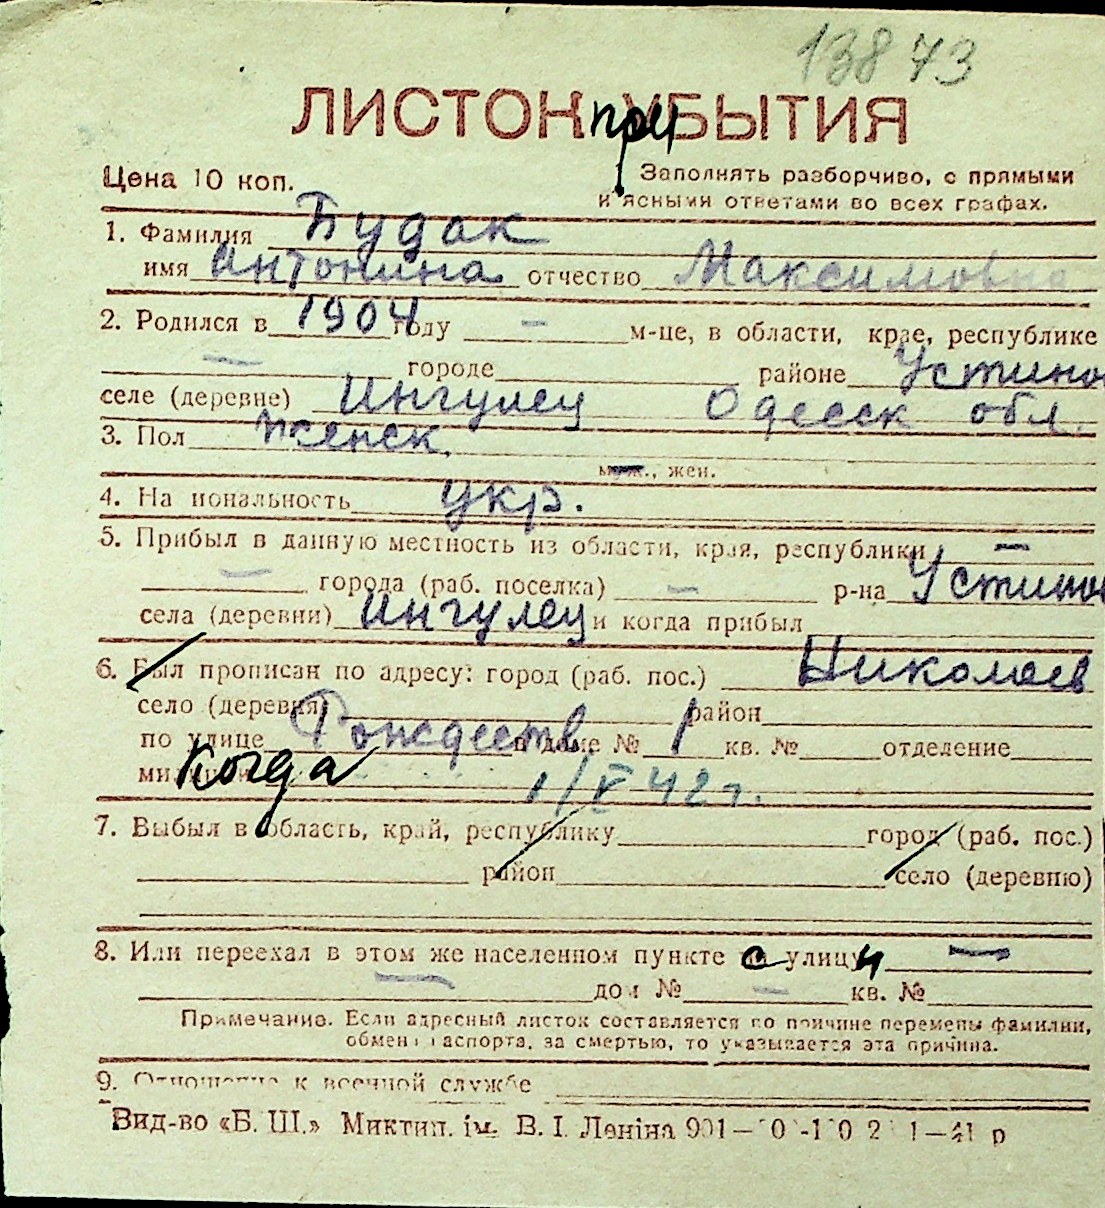 13873
ЛИСТОК при УБЫТИЯ
Цена 10 коп.
Заполнять разборчиво, с прямыми
и ясными ответами во всех графах.
1. Фамилия Будак
имя Антонина отчество Максимовна
2. Родился в 1904 году — м-це, в области, крае, республике
— городе районе Устинов
селе (деревне) Ингулец Одесск обл.
3. Пол Женск.
муж., жен.
4. Национальность укр.
5. Прибыл в данную местность из области, края, республики —
— города (раб. поселка) — р-на Устинов
села (деревни) Ингулец и когда прибыл
6. Был прописан по адресу: город (раб. пос.) Николаев
село (деревня) район
по улице Рождеств в доме № 1 кв. № отделение
милиции Когда 1/V 42 г.
7. Выбыл в область, край, республику город (раб. пос.)
район село (деревню)
8. Или переехал в этом же населенном пункте с улицы —
— дом № — кв. №
Примечание. Если адресный листок составляется по причине перемены фамилии,
обмена паспорта, за смертью, то указывается эта причина.
9. Отношение к военной службе
Вид-во «Б. Ш.» Миктип. ім. В. І. Леніна